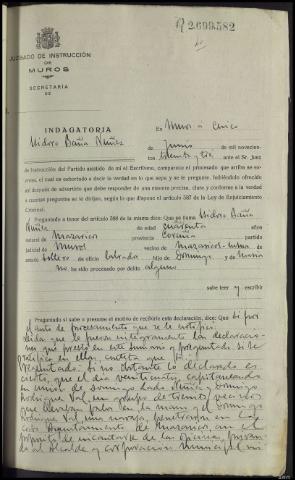 R 2.609.582
JUZGADO DE INSTRUCCIÓN
DE
MUROS
SECRETARIA
DE
INDAGATORIA
En Muros a cinco
Isidoro Baña Núñez
de Junio de mil novecien-
tos treinta y tres ante el Sr. Juez
de Instrucción del Partido asistido de mí el Escribano, comparece el procesado que arriba se ex-
presa, el cual es exhortado a decir la verdad en lo que sepa y se le pregunte, habiéndolo ofrecido
así después de advertirle que debe responder de una manera precisa, clara y conforme a la verdad
a cuantas preguntas se le dirijan, según lo que dispone el artículo 387 de la Ley de Enjuiciamiento
Criminal.
Preguntado a tenor del artículo 388 de la misma dice: Que se llama Isidoro Baña
Núñez de cuarenta años
natural de Mazaricos provincia Coruña partido
Muros vecino de Mazaricos
estado soltero de oficio labrador hijo de Domingo y de
no ha sido procesado por delito alguno
sabe leer y escribir
Preguntado si sabe o presume el motivo de recibirle esta declaración, dice: Que sí por
el auto de procesamiento que se le notificó
leída que le fueron íntegramente las declaracio-
nes que prestó en este sumario y preguntado si se
ratifica en ellas, contesta que sí.
Preguntado: Si no obstante lo declarado es
cierto, que el día veinticinco, capitaneados
en unión de Domingo
Rodríguez un grupo de treinta vecinos
que llevaban palos en la mano y el Domingo
una navaja, penetraron en
Ayuntamiento de Mazaricos, con el
propósito de incautarse de las oficinas,
al Alcalde y corporación municipal